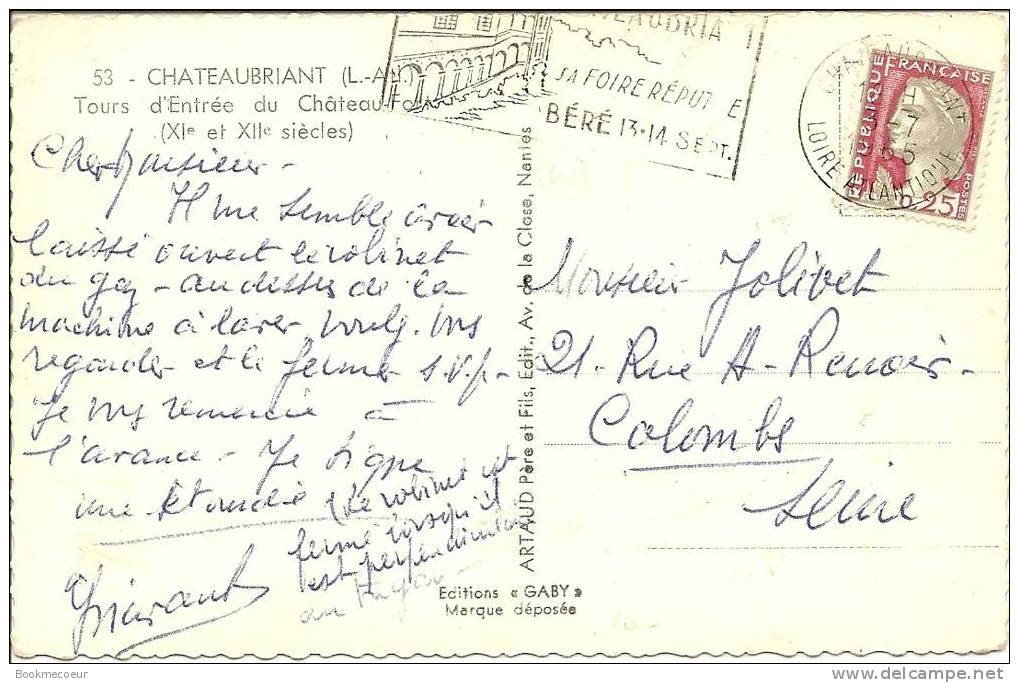 53 - CHATEAUBRIANT (L.-A.)
Tours d'Entrée du Château-Fort
(XIe et XIIe siècles)
SA FOIRE RÉPUT E
BÉRÉ 13-14 SEPT.
LOIRE ATLANTIQUE
REPUBLIQUE FRANÇAISE
POSTES
0,25
Cher Monsieur -
Il me semble avoir
laissé ouvert le robinet
du gaz - au dessus de la
machine à laver. Voulez. vous
regarder - et le fermer s.v.p -
Je vous remercie à
l'avance - Je signe
une étourdie
(le robinet est
fermé lorsqu'il
est perpendiculaire
au tuyau
ARTAUD Père et Fils, Edit., Av. de la Close, Nantes
Monsieur Jolivet
21 - Rue A - Renoir -
Colombes
Seine
Editions « GABY »
Marque déposée
Bookmecoeur
delcampe.net